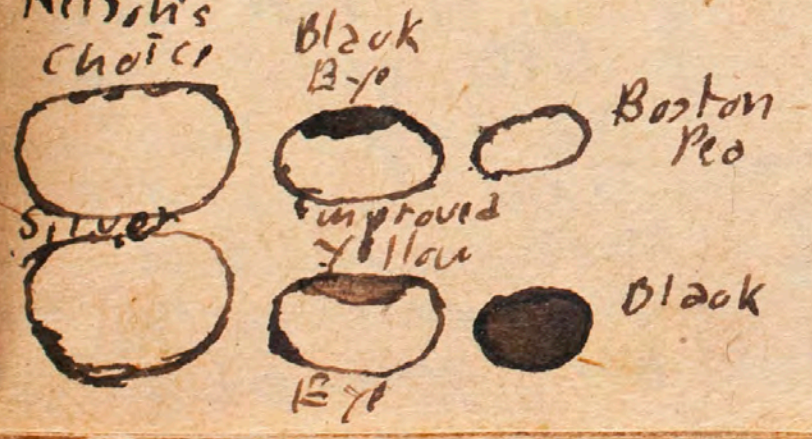 Choice
Black
Eye
Boston
Pea
Silver
Improved
Yellow
Eye
Black